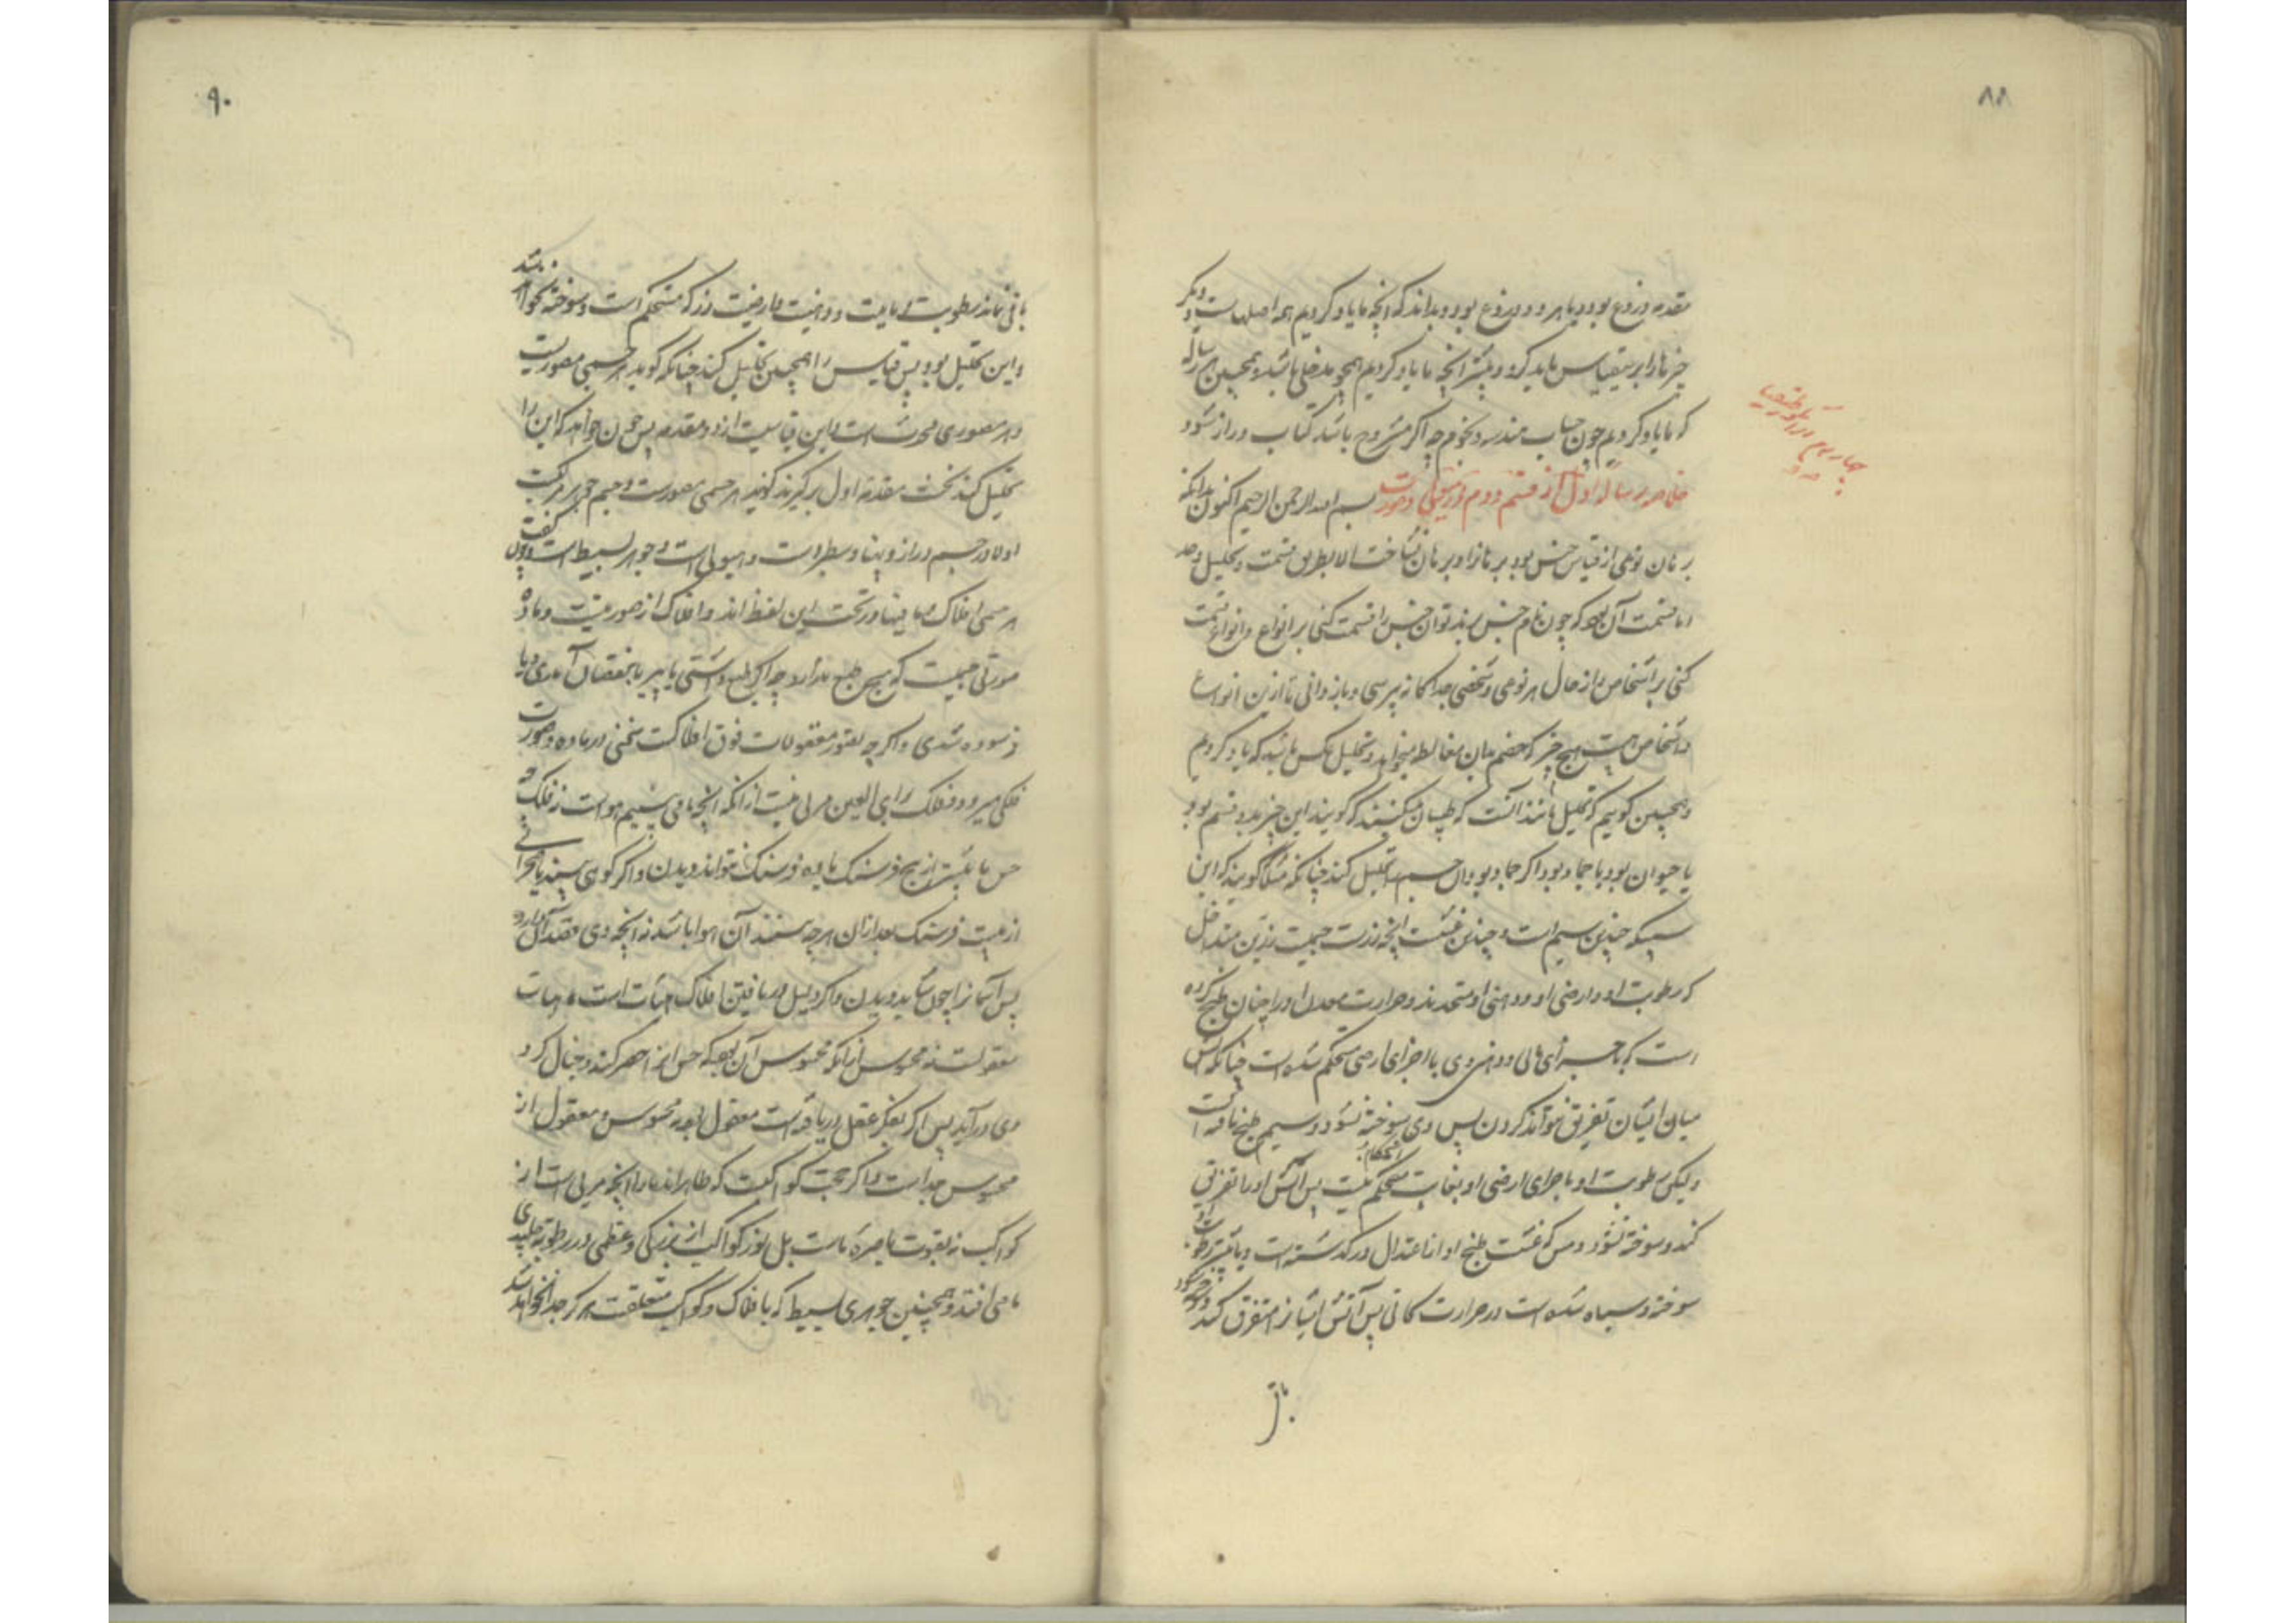 ۸۸
مقدمه دروغ بود و یا هر دو دروغ بود و بداند که آنچه ما یاد کردیم همه اصلهاست و دیگر
چیزها را برین قیاس باید کرد و بیشتر آنچه ما یاد کردیم همچو مدخلی باشد و همچنین هر رساله
که ما یاد کردیم چون حساب و هندسه و نجوم چه اگر مشروح باشد کتاب دراز شود
خلاصه رساله اول از قسم دوم در هیولی و صورت بسم الله الرحمن الرحیم اکنون بدانکه
برهان نوعی از قیاس بود برهانرا و برهان نشاخت الا بطریق قسمت و تحلیل و حد
اما قسمت آن بود که چون نام جنس برند توان جنس را قسمت کنی بر انواع و انواع قسمت
کنی بر اشخاص و از حال هر نوعی و شخصی جداگانه پرسی و باز دانی تا ازین انواع
و اشخاص هیچ چیز که خصم بدان مغالطه خواهد و تحلیل عکس باشد که یاد کردیم
و همچنین گوییم که تحلیل مانند آنست که طبیبان کنند که گویند این چیز بدو قسم بود
یا حیوان بود یا جماد بود اگر جماد بود آن جسم را تحلیل کند چنانکه مثلا گویند که این
سبیکه چندین سیم است و چندین مس است آنچه زرست جسمیت رزین متداخل
که رطوبت او و ارضی او و دهنی او متحدند و حرارت معدن او را چنان طبخ کرده
است که با جزای مائی و دهنی وی با اجزای ارضی مستحکم شده است چنانکه آتش
میان ایشان تفریق نتواند کردن پس وی سوخته نشود و سیم طبخ یافته است
ولیکن رطوبت او با جزای ارضی او بغایت مستحکم نیست پس آتش او را تفریق
استحکام
کند و سوخته شود و مس که هست طبخ او از اعتدال در گذشته است و بیشتر رطوبت او
سوخته و سیاه شده است در حرارت کانی پس آتش ایشانرا متفرق کند و سوخته شود
باقی
۹۰
باقی نماند رطوبت و مائیت و دهنیت و ارضیت زر که مستحکم است و سوخته نخواهد شد
و این تحلیل بود پس قیاس را همچنین تحلیل کند چنانکه گوید هر جسمی مصورست
و هر مصوری محدث است و این قیاسیست از دو مقدمه پس چون خواهد که این را
تحلیل کند نخست مقدمه اول برگیرند گویند هر جسمی مصورست و جسم جوهر مرکبست
اولا در جسم دراز و پهنا و سطبرست و هیولی است و جوهر بسیط است و چون گفت
هر جسمی افلاک ما فیها در تحت این لفظ اند و افلاک از صورتست و ماده
صورتی جسمیت که هیچ طبع ندارد چه اگر طبع داشتی یا پیر یا بنقصان آمدی و یا
فرسوده شدی و اگرچه تصور معقولات فوق افلاکست سخنی در ماده و صورت
فلکی میرود و فلک رای العین مرئی نیست از آنکه آنچه ما می بینیم هواست نه فلک چه
حس ما بیشتر از پنج فرسنگ یا ده فرسنگ نتواند دیدن و اگر کوهی بیند یا صحرائی
از بیست فرسنگ بعد از آن هرچه بینند آن هوا باشد نه آنچه وی مقدار دارد
پس آسمانرا چون شاید دیدن و اگر دلیل دریافتن افلاک اثبات است اثبات
معقولست نه محسوس از آنکه محسوس آن بود که حس او را حصر کند و خیال کرد
وی در آید پس اگر بفکر عقل دریافته است معقول بود نه محسوس و معقول از
محسوس جداست و اگر حجت کواکبست که ظاهراند ما را آنچه مرئی است از
کواکب نه بقوت باصره ماست بل نور کواکب از بزرگی و عظمی در رطوبت جلیدی
ما می افتد و همچنین جوهری بسیط که با افلاک و کواکب متعلقست هرگز جدا نخواهد شد
چهارم